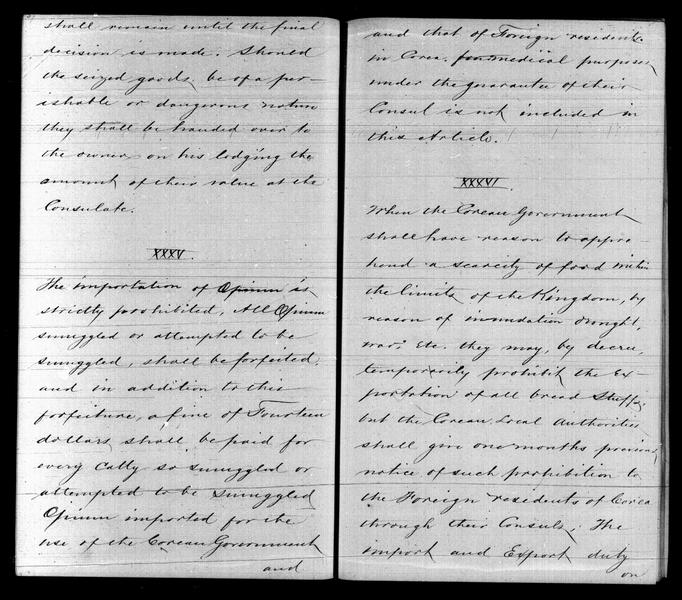 shall remain until the final
decision is made. Should
the seized goods be of a per-
ishable or dangerous nature
they shall be handed over to
the owner on his lodging the
amount of their value at the
Consulate.
XXXV.
The importation of Opium is
strictly prohibited, All Opium
smuggled or attempted to be
smuggled, shall be forfeited,
and in addition to this
forfeiture, a fine of Fourteen
dollars shall be paid for
every Catty so smuggled or
attempted to be smuggled
Opium imported for the
use of the Corean Government
and
and that of Foreign residents
in Corea, for medical purposes
under the guarantee of their
Consul is not included in
this Article.
XXXVI.
When the Corean Government
shall have reason to appre-
hend a scarcity of food within
the limits of the Kingdom, by
reason of inundation drought,
war, etc. they may, by decree,
temporarily prohibit the Ex-
portation of all bread stuffs,
but the Corean Local Authorities
shall give one months previous
notice of such prohibition to
the Foreign residents of Corea
through their Consuls; The
import and Export duty
on